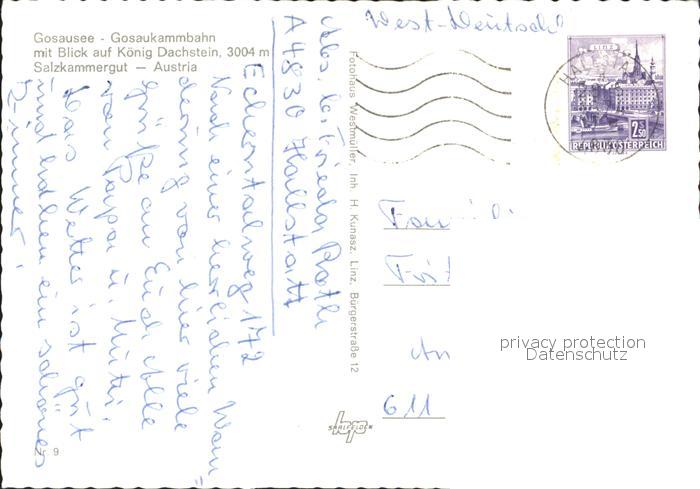 Gosausee - Gosaukammbahn
mit Blick auf König Dachstein, 3004 m
Salzkammergut — Austria
Abs. b. Frieda Roth
A 4830 Hallstatt
Echerntalweg 172
Nach einer herrlichen Wan=
derung von hier viele
Grüße an Euch Alle
von Papa u. Mutti.
Das Wetter ist gut
und haben ein schönes
Zimmer.
Nr. 9
Fotohaus Westmüller, Inh. H. Kunasz, Linz, Bürgerstraße 12
West-Deutschl
LINZ
2.50
REPUBLIK ÖSTERREICH
Fami
An
611
privacy protection
Datenschutz
SAALFELDEN